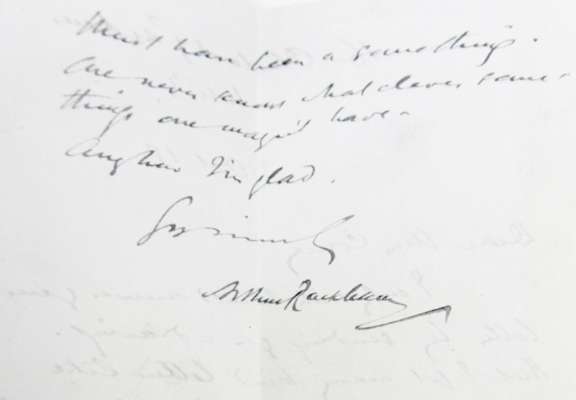 must have been a something.
One never knows what clever some-
things one mayn't have.
Anyhow I'm glad.
Yrs sincerely
Arthur Rackham